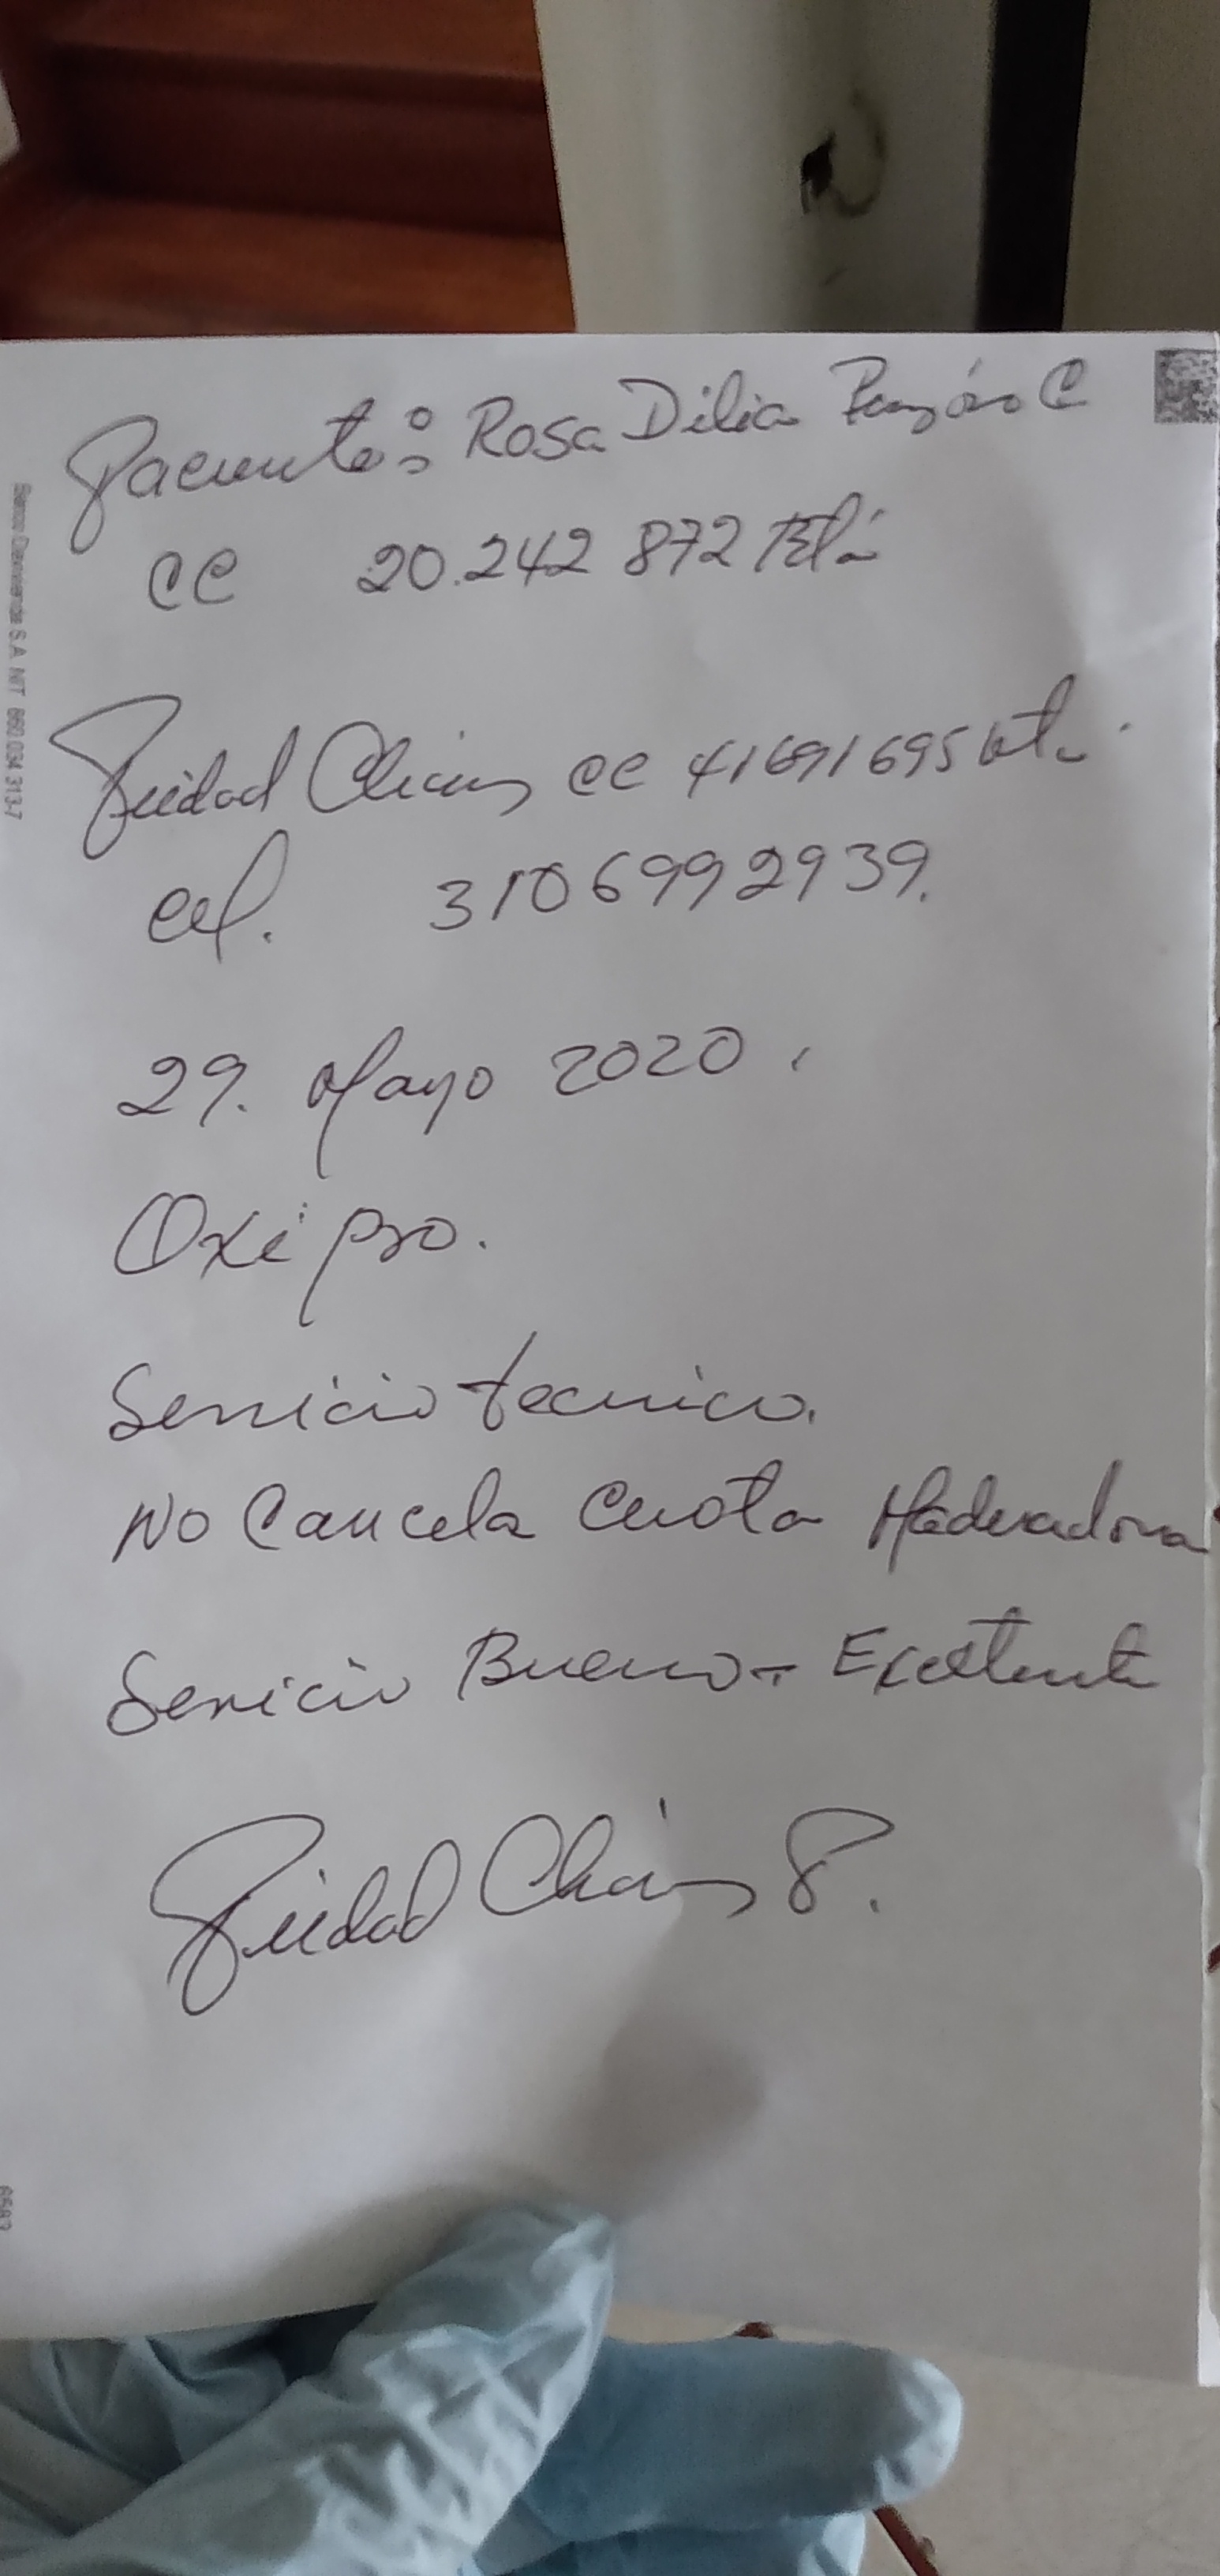 Paciente: Rosa Dilia Pinzón C
CC 20.242 872 Btá
Piedad Chain CC 41691695 btá.
cel. 3106992939.
29. Mayo 2020.
Oxi pro.
Servicio tecnico.
No Cancela Cuota Moderadora
Servicio Bueno - Excelente
Piedad Chain P.
Banco Davivienda S.A. NIT 860.034.313-7